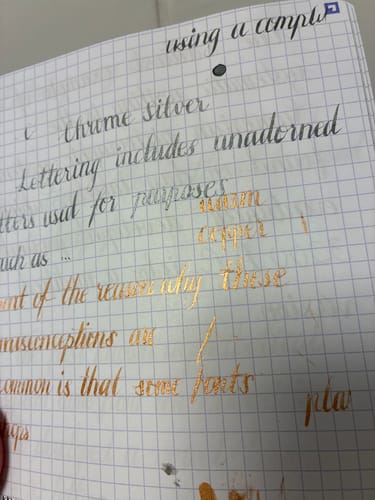 using a comple
Chrome Silver
Lettering includes unadorned
tters used for purposes
uch as ...
warm
copper
art of the reason why these
misconceptions are
common is that some fonts
play